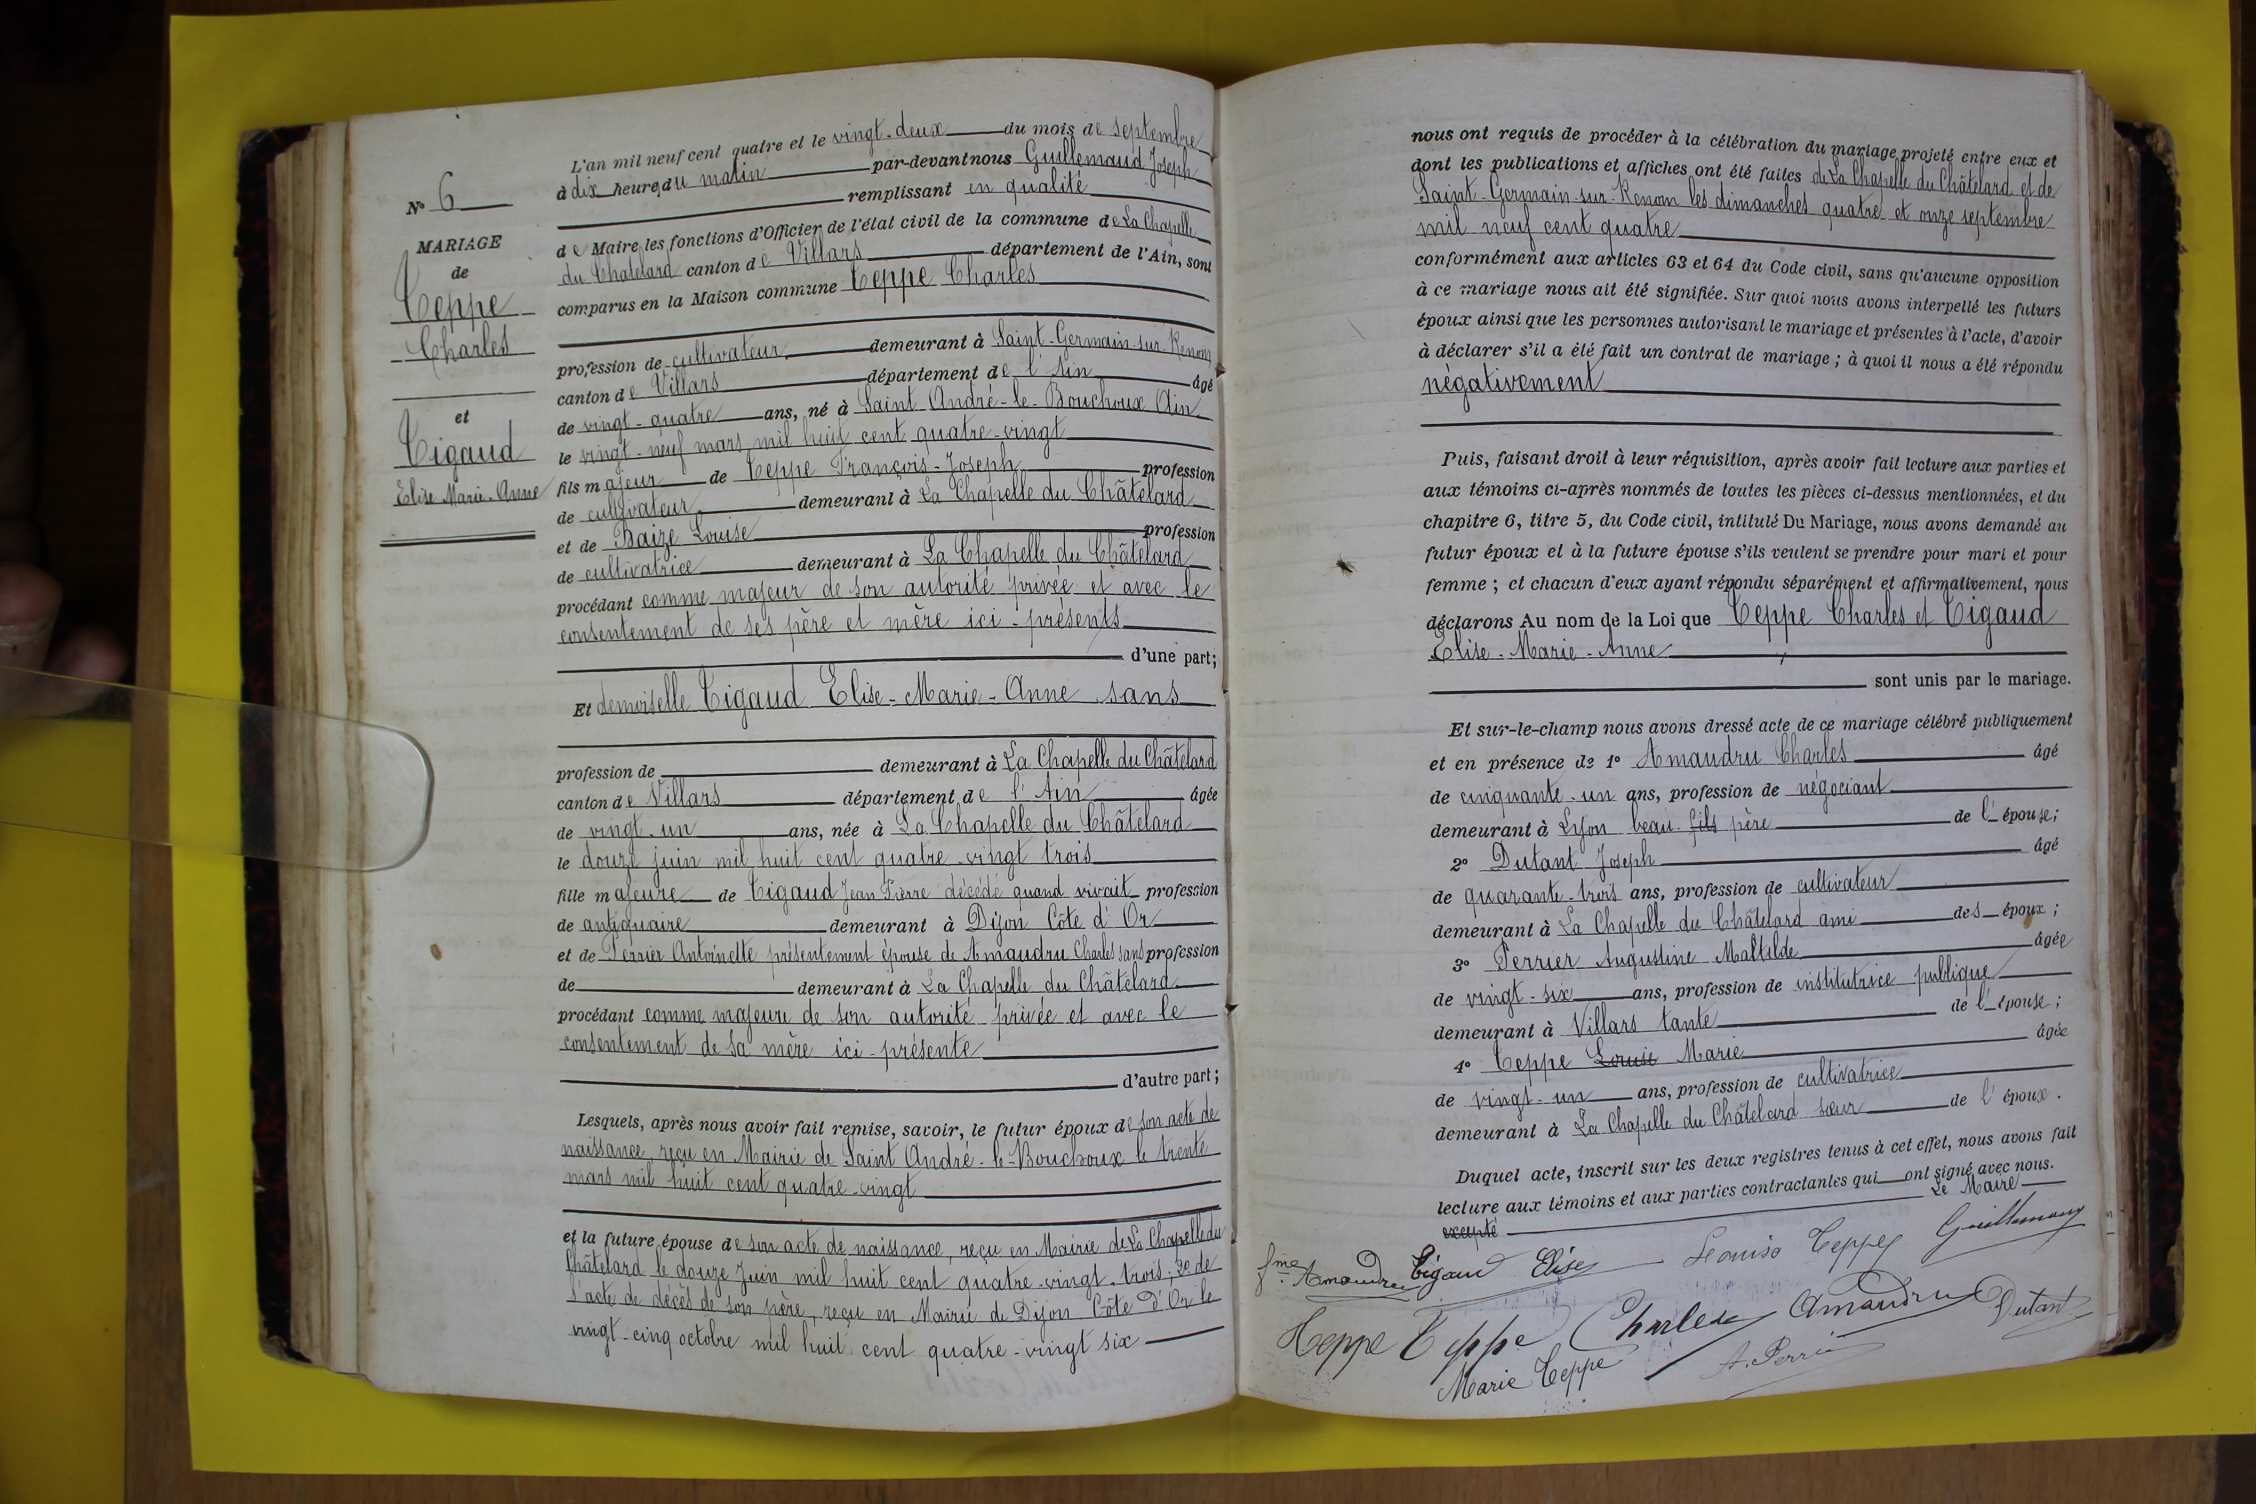 L'an mil neuf cent quatre et le vingt-deux du mois de septembre
à dix heures du matin par-devant nous Guillemaud Joseph
remplissant en qualité
de Maire les fonctions d'Officier de l'état civil de la commune de La Chapelle
du Châtelard canton de Villars département de l'Ain, sont
comparus en la Maison commune Teppe Charles
profession de cultivateur demeurant à Saint-Germain-sur-Renom
canton de Villars département de l'Ain âgé
de vingt-quatre ans, né à Saint-André-le-Bouchoux Ain
le vingt-neuf mars mil huit cent quatre-vingt
fils majeur de Teppe François-Joseph profession
de cultivateur demeurant à La Chapelle du Châtelard
et de Baize Louise profession
de cultivatrice demeurant à La Chapelle du Châtelard
procédant comme majeur de son autorité privée et avec le
consentement de ses père et mère ici-présents
d'une part;
Et demoiselle Tigaud Elise-Marie-Anne sans
profession de demeurant à La Chapelle du Châtelard
canton de Villars département de l'Ain âgée
de vingt-un ans, née à La Chapelle du Châtelard
le douze juin mil huit cent quatre-vingt trois
fille majeure de Tigaud Jean Pierre décédé quand vivait profession
de antiquaire demeurant à Dijon Côte d'Or
et de Perrier Antoinette présentement épouse de Amaudru Charles sans profession
de demeurant à La Chapelle du Châtelard
procédant comme majeure de son autorité privée et avec le
consentement de sa mère ici-présente
d'autre part;
Lesquels, après nous avoir fait remise, savoir, le futur époux de son acte de
naissance, reçu en Mairie de Saint André-le-Bouchoux le trente
mars mil huit cent quatre-vingt
et la future épouse de son acte de naissance, reçu en Mairie de La Chapelle du
Châtelard le douze Juin mil huit cent quatre-vingt-trois; 2º de
l'acte de décès de son père, reçu en Mairie de Dijon Côte d'Or le
vingt-cinq octobre mil huit cent quatre-vingt six
Nº 6
MARIAGE
de
Teppe
Charles
et
Tigaud
Elise Marie-Anne
nous ont requis de procéder à la célébration du mariage projeté entre eux et
dont les publications et affiches ont été faites de La Chapelle du Châtelard et de
Saint-Germain-sur-Renom les dimanches quatre et onze septembre
mil neuf cent quatre
conformément aux articles 63 et 64 du Code civil, sans qu'aucune opposition
à ce mariage nous ait été signifiée. Sur quoi nous avons interpellé les futurs
époux ainsi que les personnes autorisant le mariage et présentes à l'acte, d'avoir
à déclarer s'il a été fait un contrat de mariage; à quoi il nous a été répondu
négativement
Puis, faisant droit à leur réquisition, après avoir fait lecture aux parties et
aux témoins ci-après nommés de toutes les pièces ci-dessus mentionnées, et du
chapitre 6, titre 5, du Code civil, intitulé Du Mariage, nous avons demandé au
futur époux et à la future épouse s'ils veulent se prendre pour mari et pour
femme; et chacun d'eux ayant répondu séparément et affirmativement, nous
déclarons Au nom de la Loi que Teppe Charles et Tigaud
Elise-Marie-Anne
sont unis par le mariage.
Et sur-le-champ nous avons dressé acte de ce mariage célébré publiquement
et en présence de 1º Amaudru Charles âgé
de cinquante-un ans, profession de négociant
demeurant à Lyon beau-fils père de l'épouse;
2º Dutant Joseph âgé
de quarante-trois ans, profession de cultivateur
demeurant à La Chapelle du Châtelard ami des époux;
3º Perrier Augustine Maltilde âgée
de vingt-six ans, profession de institutrice publique
demeurant à Villars tante de l'épouse;
4º Teppe Louise Marie âgée
de vingt-un ans, profession de cultivatrice
demeurant à La Chapelle du Châtelard sœur de l'époux.
Duquel acte, inscrit sur les deux registres tenus à cet effet, nous avons fait
lecture aux témoins et aux parties contractantes qui ont signé avec nous.
excepté Le Maire
fme Amaudru Tigaud Elise Louise Teppe Guillemaud
Teppe Teppe Charles Amaudru Dutant
Marie Teppe A. Perrier